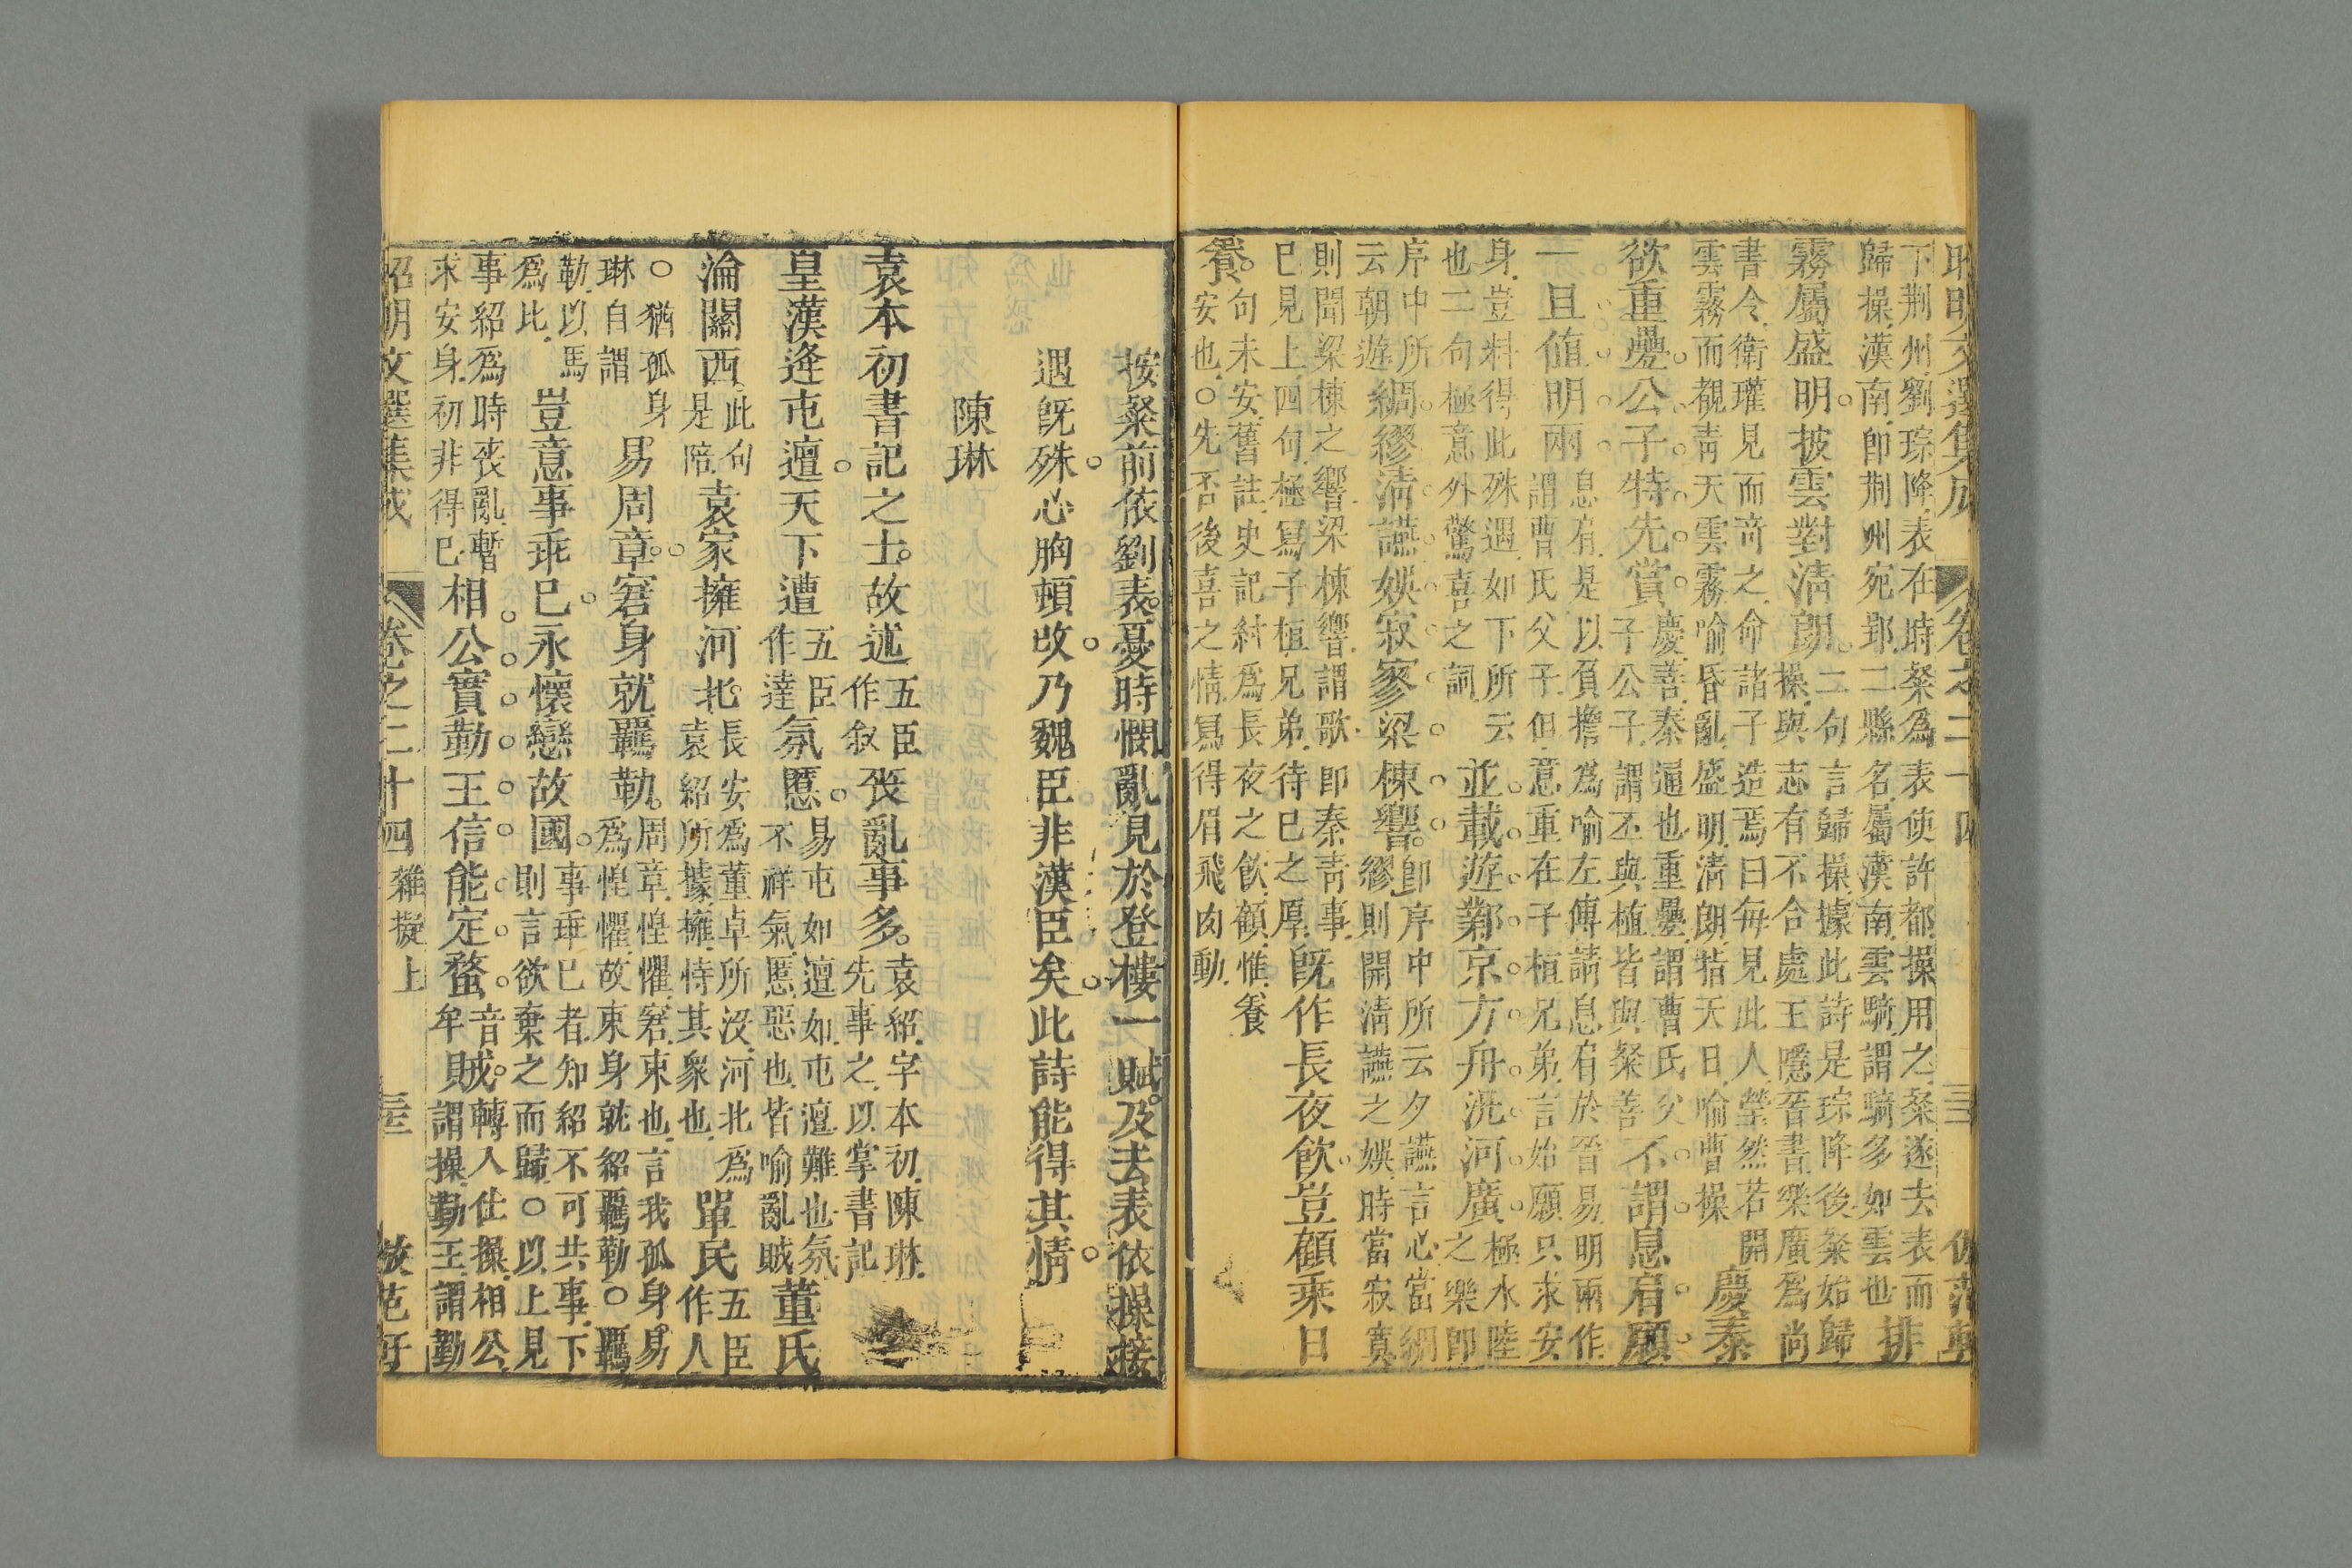 昭明文選集成 卷之二十四 三
下荆州劉琮降表在時粲爲表使許都操用之粲遂去表而
歸操漢南即荆州宛郢二縣名屬漢南雲騎謂騎多如雲也排
霧屬盛明披雲對清朗二句言歸操據此詩是琮降後粲始歸
操與志有不合處王隱晉書樂廣爲尚
書令衛瓘見而竒之命諸子造焉曰每見此人瑩然若開
雲霧而覩青天雲霧喻昏亂盛明清朗指天日喻曹操慶泰
欲重疊公子特先賞慶善泰通也重疊謂曹氏父
子公子謂丕與植皆與粲善不謂息肩願
一旦值明兩息肩是以負擔爲喻左傳請息肩於晉易明兩作
謂曹氏父子但意重在子植兄弟言始願只求安
身豈料得此殊遇如下所云
也二句極意外驚喜之詞並載遊鄴京方舟汎河廣極水陸
之樂即
序中所
云朝遊綢繆清讌娛寂寥梁棟響即序中所云夕讌言心當綢
繆則開清讌之娛時當寂寞
則聞梁棟之響梁棟響謂歌即秦青事
已見上四句極寫子植兄弟待已之厚既作長夜飲豈顧乘日
養句未安舊註史記紂爲長夜之飲顧惟養
安也○先否後喜之情寫得眉飛肉動
按粲前依劉表憂時憫亂見於登樓一賦及去表依操接
遇旣殊心胸頓改乃魏臣非漢臣矣此詩能得其情
陳琳
袁本初書記之士故述五臣
作叙喪亂事多袁紹字本初陳琳
先事之以掌書記
皇漢逢屯邅天下遭五臣
作達氛慝易屯如邅如屯邅難也氛
不祥氣慝惡也皆喻亂賊董氏
淪關西此句
是陪袁家擁河北長安爲董卓所沒河北爲
袁紹所據擁恃其衆也單民五臣
作人
○猶孤身
琳自謂易周章窘身就羈勒周章惶懼窘束也言我孤身易
爲惶懼故束身就紹羈勒○羈
勒以馬
爲比豈意事乖已永懷戀故國事乖已者知紹不可共事下
則言欲棄之而歸○以上見
事紹爲時喪亂暫
求安身初非得已相公實勤王信能定蝥音
牟賊轉入仕操相公
謂操勤王謂勤
昭明文選集成 卷之二十四 雜擬上 三